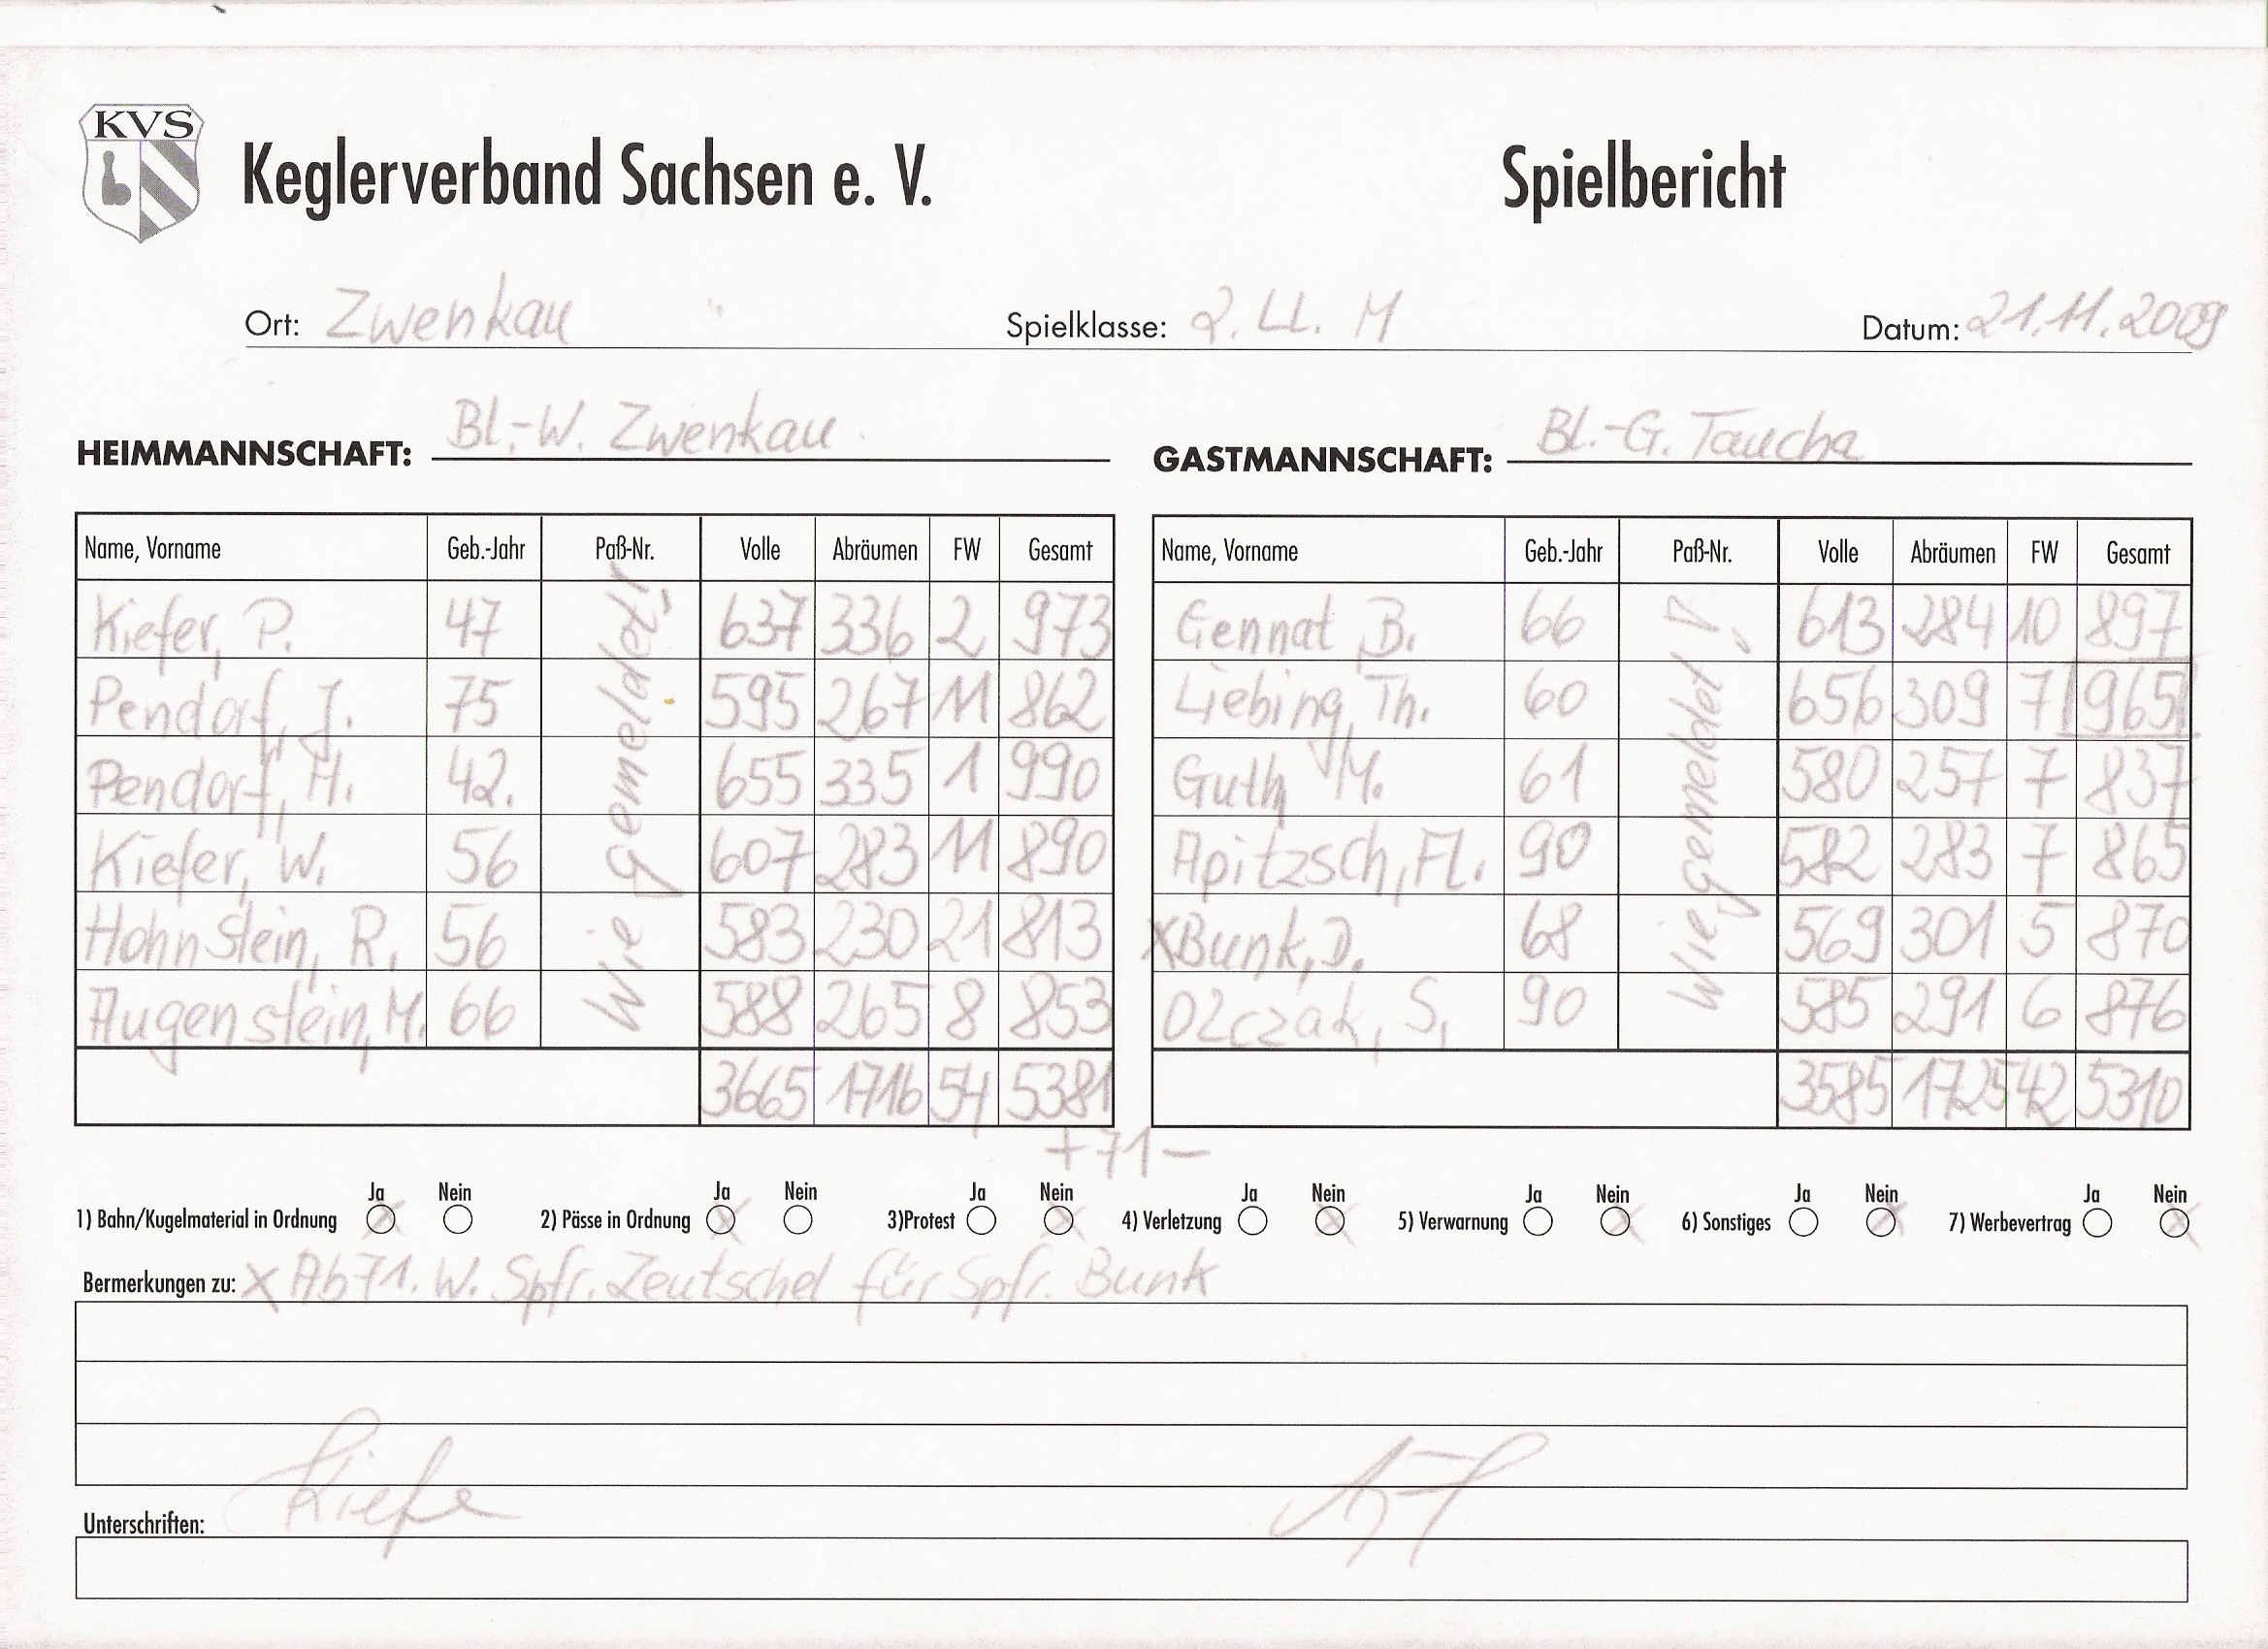 KVS
Keglerverband Sachsen e. V. Spielbericht
Ort: Zwenkau Spielklasse: 2. LL. M Datum: 21.11.2009
HEIMMANNSCHAFT: Bl.-W. Zwenkau GASTMANNSCHAFT: Bl.-G. Taucha
Name, Vorname Geb.-Jahr Paß-Nr. Volle Abräumen FW Gesamt
Kiefer, P. 47 637 336 2 973
Pendorf, J. 75 595 267 11 862
Pendorf, H. 42. 655 335 1 990
Kiefer, W. 56 607 283 11 890
Hohnstein, R. 56 583 230 21 813
Augenstein, M. 66 588 265 8 853
wie gemeldet!
3665 1716 54 5381
Name, Vorname Geb.-Jahr Paß-Nr. Volle Abräumen FW Gesamt
Gennat, B. 66 613 284 10 897
Liebing, Th. 60 656 309 7 965
Guth, M. 61 580 257 7 837
Apitzsch, Fl. 90 582 283 7 865
X Bunk, D. 68 569 301 5 870
Olczak, S. 90 585 291 6 876
wie gemeldet!
3585 1725 42 5310
+71-
Ja Nein Ja Nein Ja Nein Ja Nein Ja Nein Ja Nein Ja Nein
1) Bahn/Kugelmaterial in Ordnung 2) Pässe in Ordnung 3)Protest 4) Verletzung 5) Verwarnung 6) Sonstiges 7) Werbevertrag
Bermerkungen zu: X Ab 71. W. Spfr. Zeutschel für Spfr. Bunk
Unterschriften: Kiefe